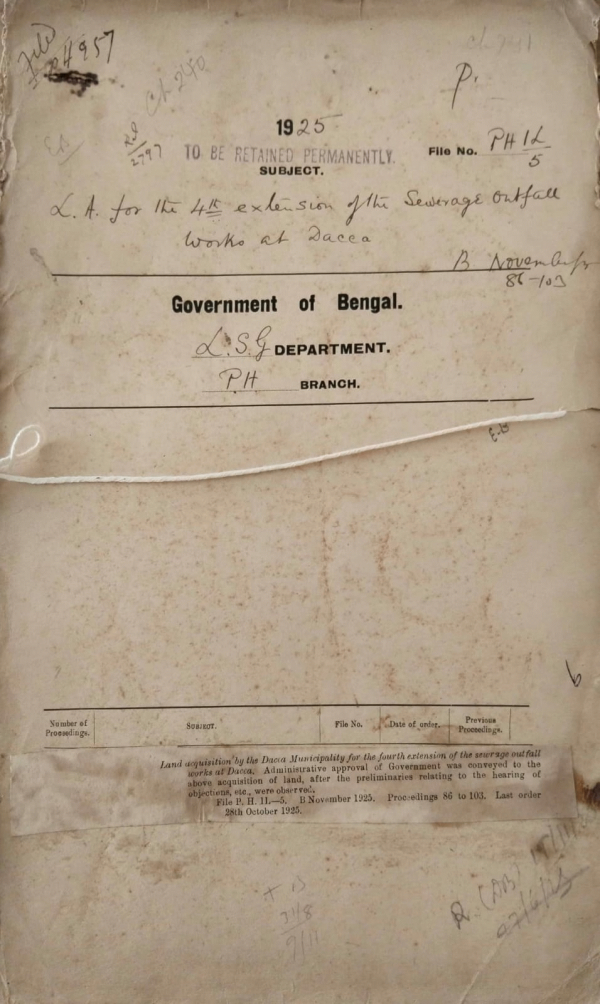 4957
Ch 240
P.
1925
2797
TO BE RETAINED PERMANENTLY.
File No. PH 1L
5
SUBJECT.
L. A. for the 4th extension of the Sewerage Outfall
Works at Dacca
B November
86-103
Government of Bengal.
L.S.G DEPARTMENT.
PH BRANCH.
E.B
6
Number of Proceedings.
SUBJECT.
File No.
Date of order.
Previous Proceedings.
Land acquisition by the Dacca Municipality for the fourth extension of the sewerage outfall
works at Dacca. Administrative approval of Government was conveyed to the
above acquisition of land, after the preliminaries relating to the hearing of
objections, etc., were observed.
File P. H. 1L—5. B November 1925. Proceedings 86 to 103. Last order
28th October 1925.